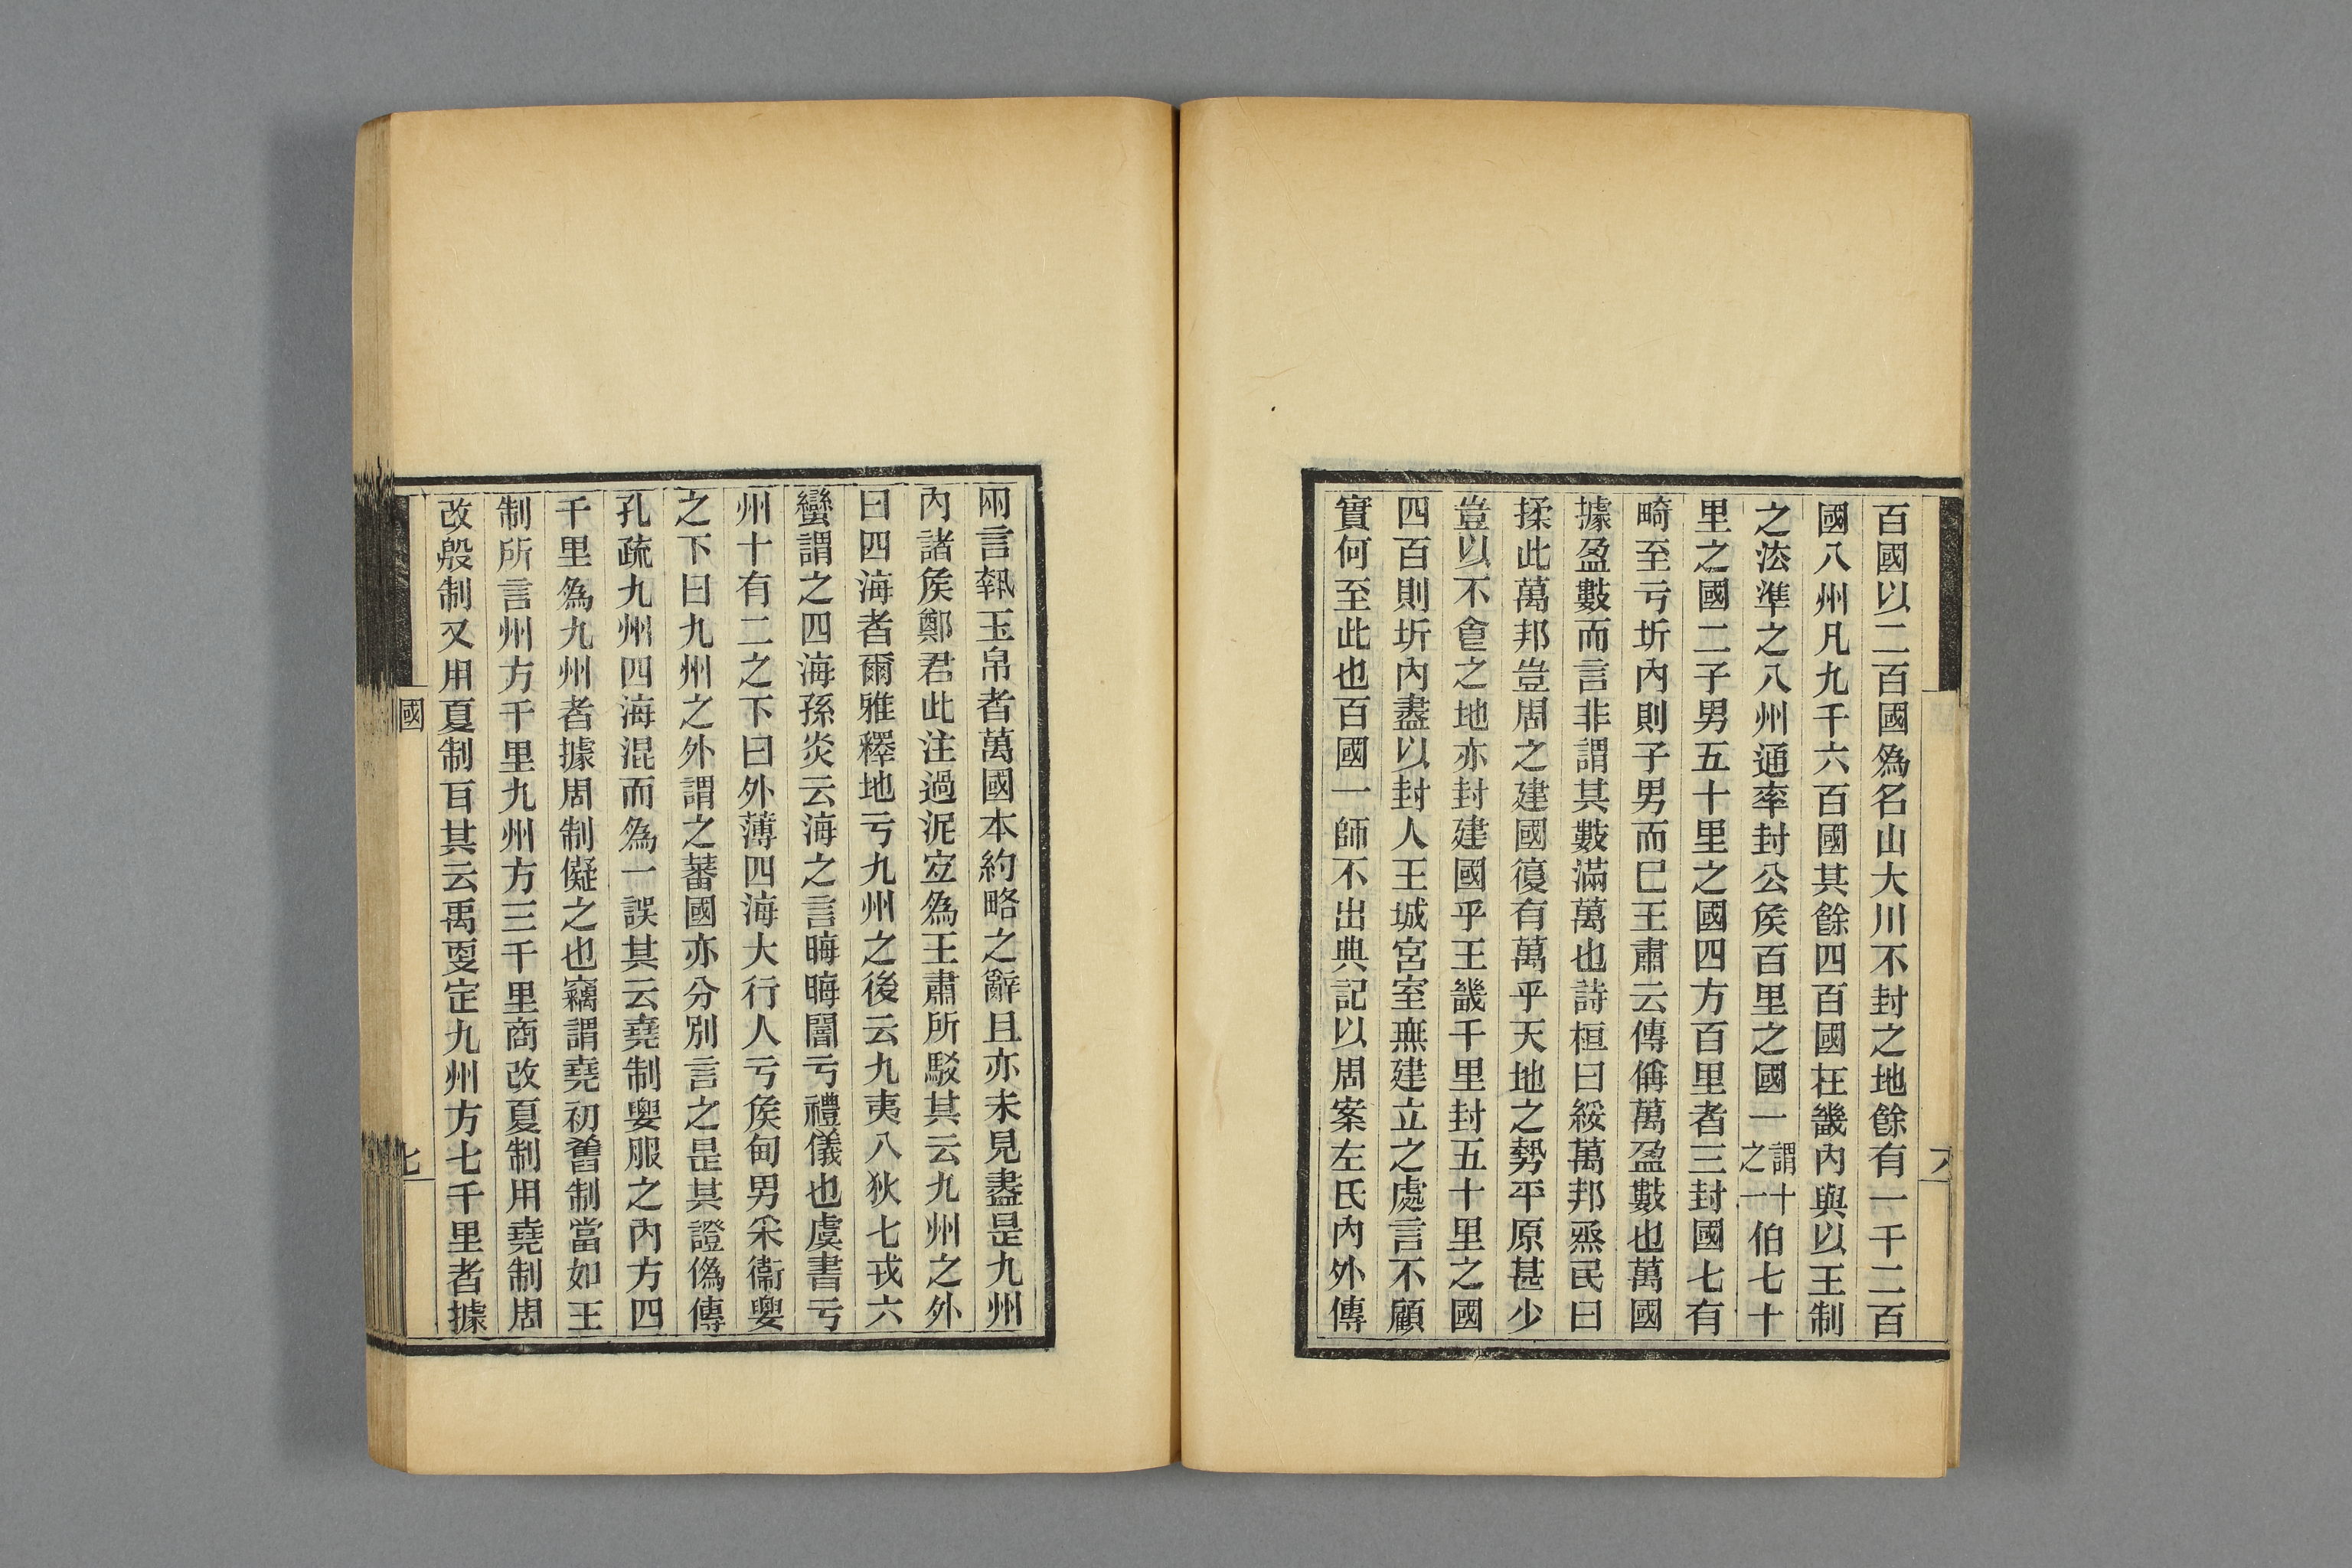 百國以二百國爲名山大川不封之地餘有一千二百
國八州凡九千六百國其餘四百國在畿內與以王制
之法準之八州通率封公矦百里之國一謂十之一伯七十
里之國二子男五十里之國四方百里者三封國七有
畸至亏圻內則子男而已王肅云傳偁萬盈數也萬國
據盈數而言非謂其數滿萬也詩桓曰綏萬邦烝民曰
揉此萬邦豈周之建國復有萬乎天地之勢平原甚少
豈以不𠊊之地亦封建國乎王畿千里封五十里之國
四百則圻內盡以封人王城宮室無建立之處言不顧
實何至此也百國一師不出典記以周案左氏內外傳
兩言執玉帛者萬國本約略之辭且亦未見盡是九州
內諸矦鄭君此注過泥宜爲王肅所駁其云九州之外
曰四海者爾雅釋地亏九州之後云九夷八狄七戎六
蠻謂之四海孫炎云海之言晦晦闇亏禮儀也虞書亏
州十有二之下曰外薄四海大行人亏矦甸男采衞要
之下曰九州之外謂之蕃國亦分別言之是其證僞傳
孔疏九州四海混而爲一誤其云堯制要服之內方四
千里爲九州者據周制儗之也竊謂堯初舊制當如王
制所言州方千里九州方三千里商改夏制用堯制周
改殷制又用夏制百其云禹更定九州方七千里者據
國
七